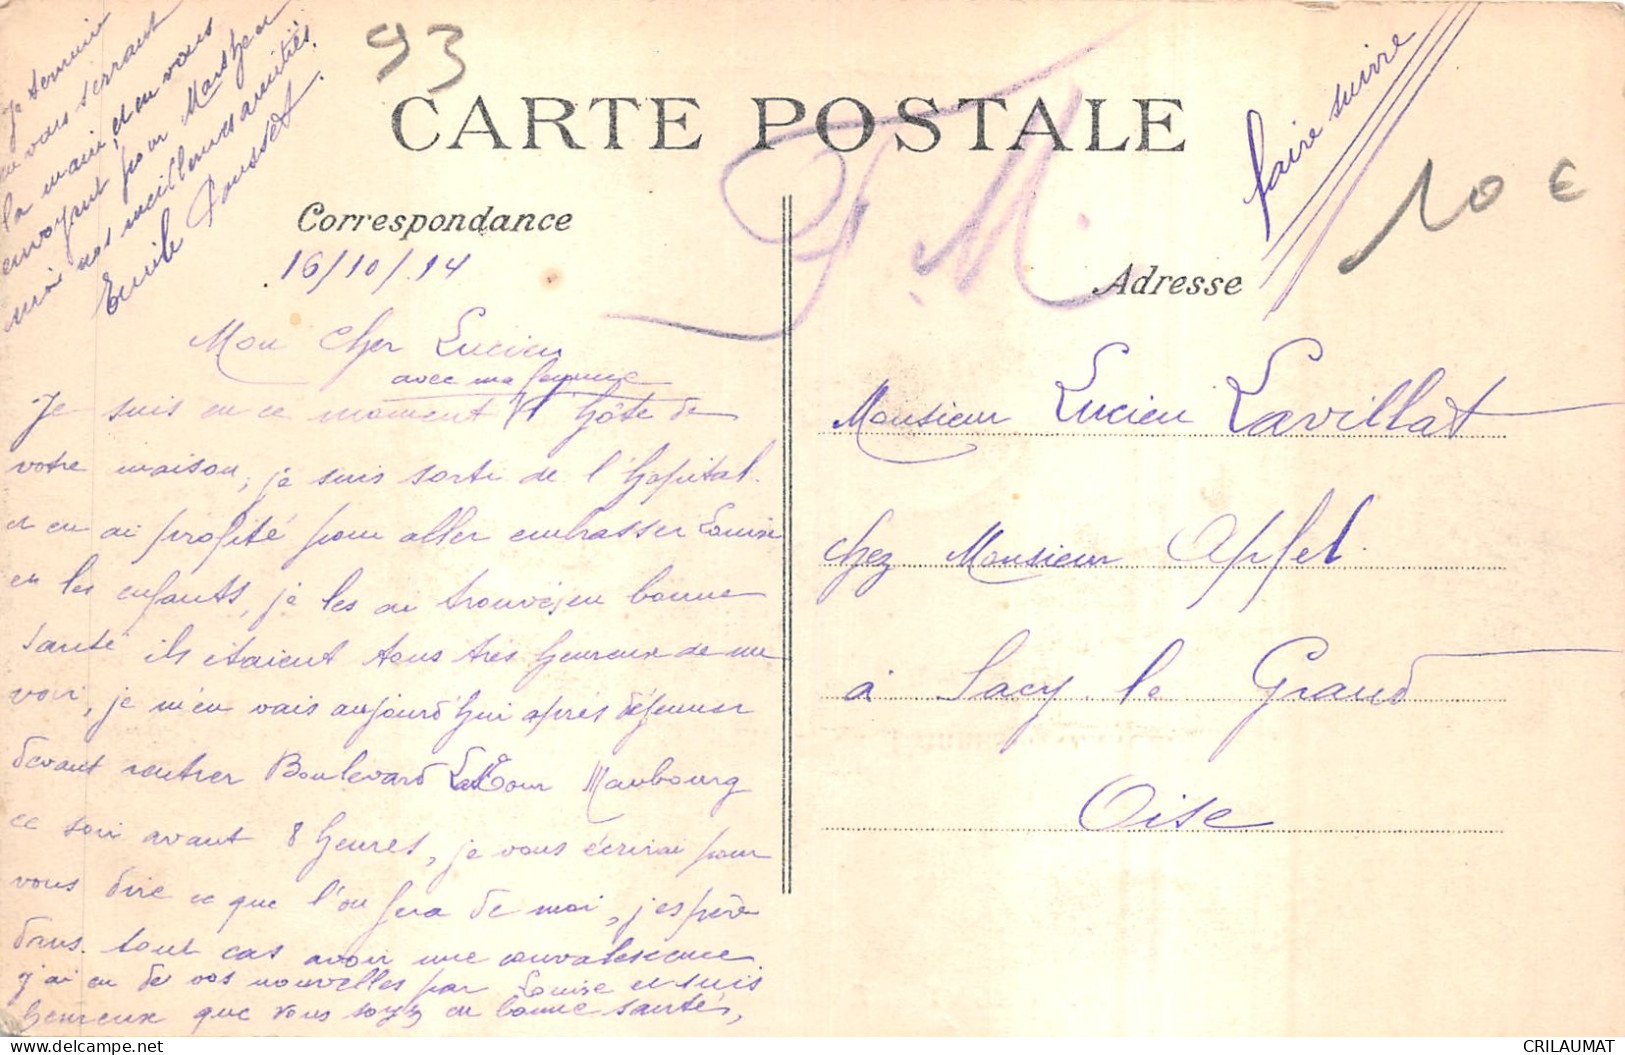 93
CARTE POSTALE
F. M.
faire suivre
10 €
Correspondance
16/10/14
Adresse
Mon cher Lucien
avec ma femme
Je suis en ce moment l'hôte de
votre maison, je suis sorti de l'hopital
et en ai profité pour aller embrasser Louise
et les enfants, je les ai trouvés en bonne
santé ils étaient tous très heureux de me
voir, je m'en vais aujourd'hui après déjeuner
devant rentrer Boulevard Latour Maubourg
ce soir avant 8 heures, je vous écrirai pour
vous dire ce que l'on fera de moi, j'espère
dans tout cas avoir une convalescence
j'ai eu de vos nouvelles par Louise et suis
heureux que vous soyez en bonne santé,
Je termine
en vous serrant
la main, et en vous
envoyant pour
moi nos meilleures amitiés.
Emile Pousset
Monsieur Lucien Lavillat
chez Monsieur Apfel.
à Sacy le Grand
Oise
CRILAUMAT